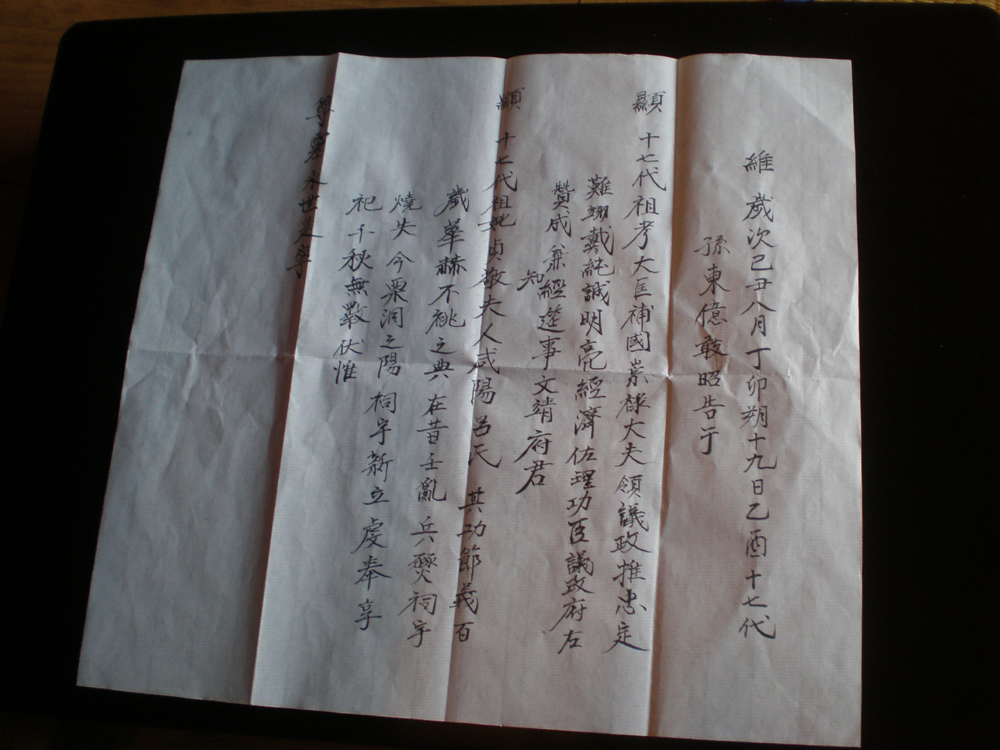 維 歲次己丑八月丁卯朔十九日乙酉 十七代
孫東億敢昭告于
顯 十七代祖考大匡補國崇祿大夫領議政推忠定
難翊戴純誠明亮經濟佐理功臣議政府左
贊成兼知經筵事文靖府君
顯 十七代祖妣貞敬夫人咸陽呂氏 其功節義百
歲華赫不祧之典在昔壬亂兵燹祠宇
燒失今栗洞之陽祠宇新立虔奉享
祀千秋無斁伏惟
尊靈永世是寧